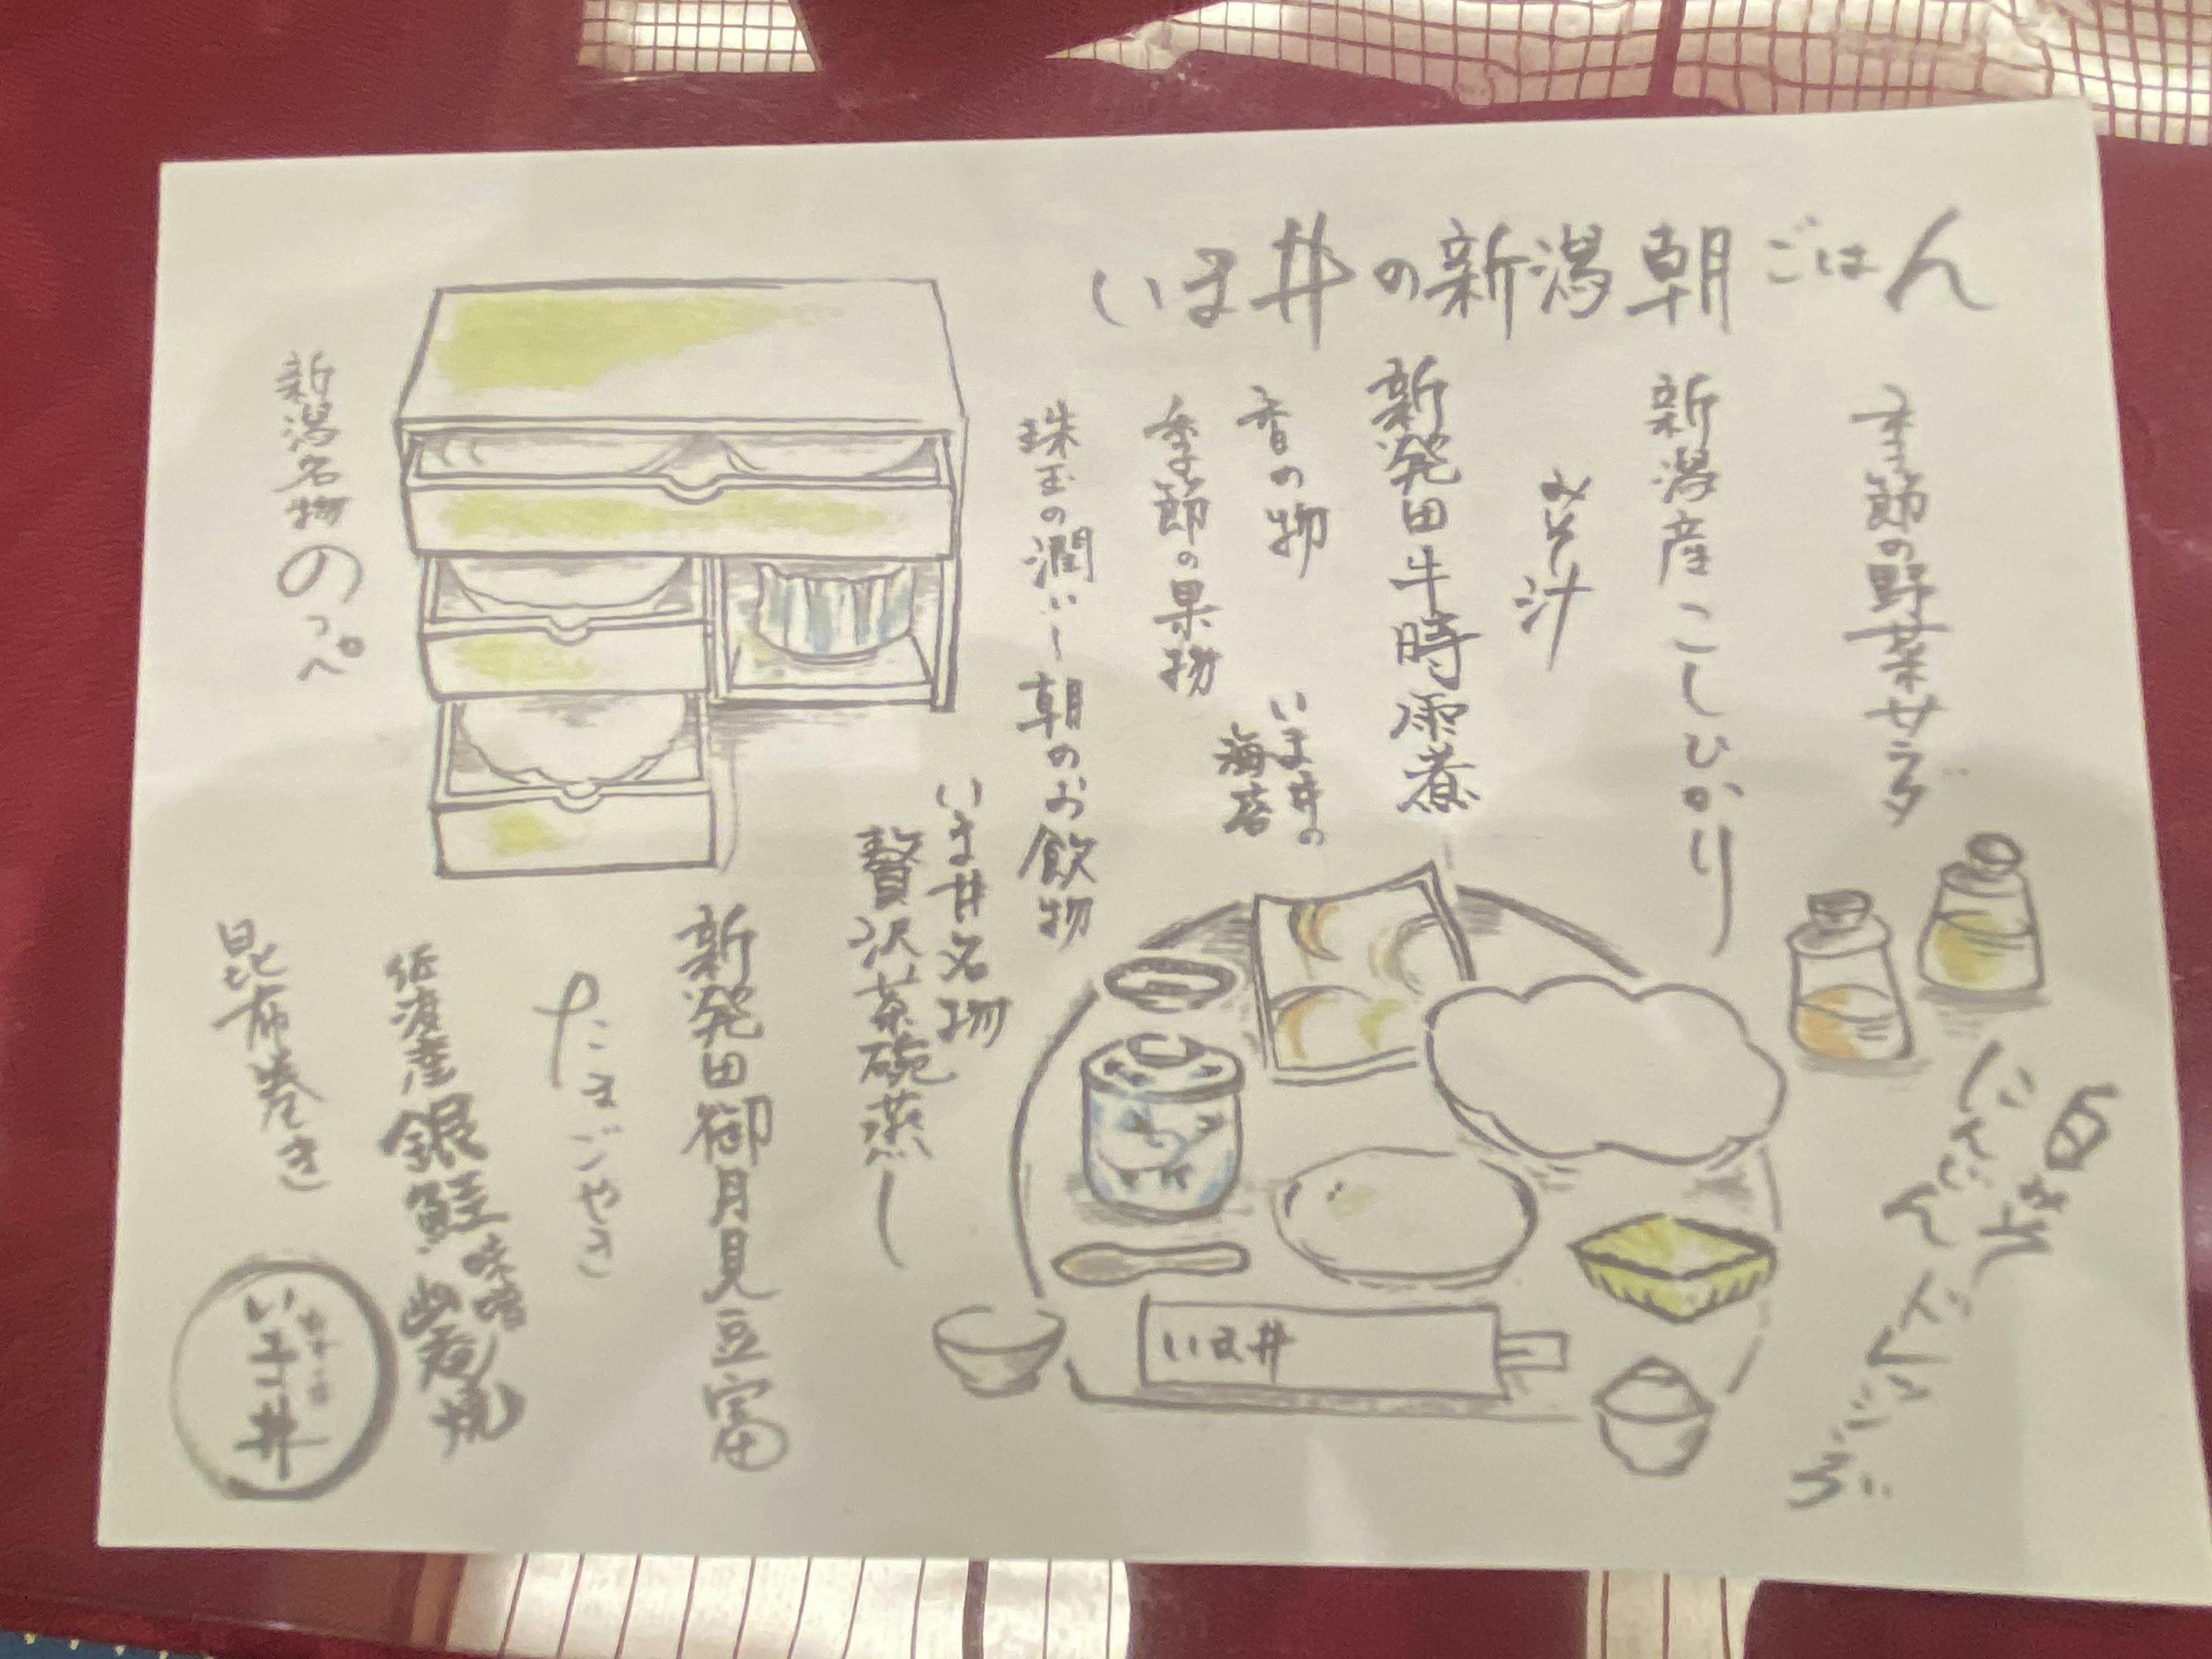 いま井の新潟朝ごはん
季節の野菜サラダ
自家製
にんじんドレッシング
新潟産こしひかり
みそ汁
新発田牛時雨煮
香の物
いま井の
海苔
季節の果物
珠玉の潤い〜朝のお飲物
いま井名物
贅沢茶碗蒸し
新発田御月見豆富
たまごやき
佐渡産銀鮭
味噌
幽庵焼
新潟名物のっぺ
昆布巻き
いま井
いま井